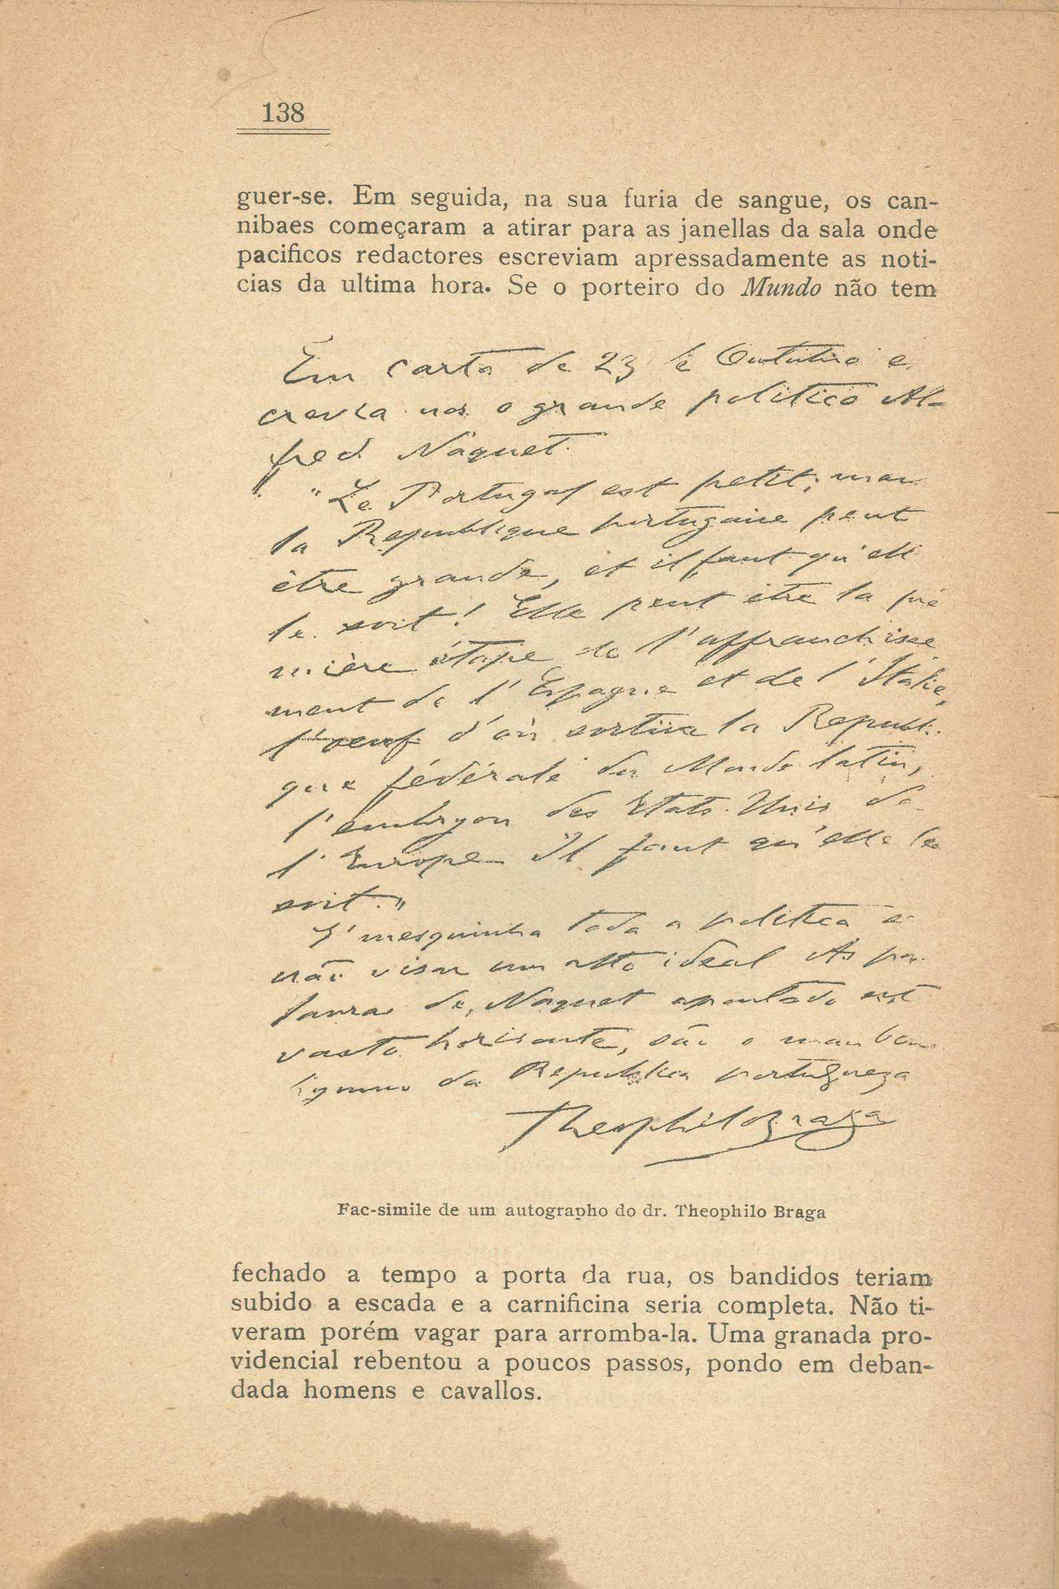 138
guer-se. Em seguida, na sua furia de sangue, os can-
nibaes começaram a atirar para as janellas da sala onde
pacificos redactores escreviam apressadamente as noti-
cias da ultima hora. Se o porteiro do Mundo não tem
Em carta de 23 de Outubro es
crevia nos o grande politico Al-
fred Naquet:
"Le Portugal est petit; mais
la Republique portugaise peut
être grande, et il faut qu'elle
le soit! Elle peut être la pre
mière étape de l'affranchisse
ment de l'Espagne et de l'Italie,
l'œuf d'où sortira la Republi-
que fédérale du Monde latin,
l'embryon des Etats-Unis de
l'Europe. Il faut qu'elle le
soit."
E' mesquinha toda a politica
não visar um alto ideal As pa-
lavras de Naquet apontado este
vasto horisonte, são o mais bello
hymno da Republica portugueza
Theophilo Braga
Fac-simile de um autographo do dr. Theophilo Braga
fechado a tempo a porta da rua, os bandidos teriam
subido a escada e a carnificina seria completa. Não ti-
veram porém vagar para arromba-la. Uma granada pro-
videncial rebentou a poucos passos, pondo em deban-
dada homens e cavallos.